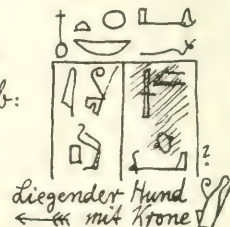 b:
?
Liegender Hund
mit Krone